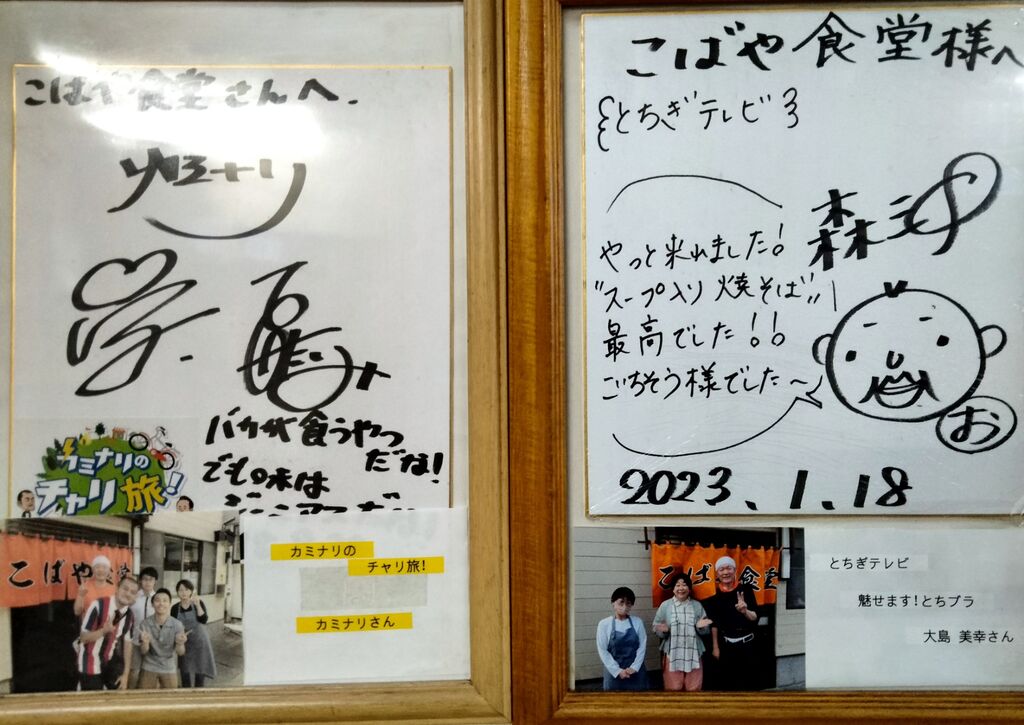 こばや食堂さんへ.
カミナリ
バカが食うやつ
だな!
でも味は
カミナリの
チャリ旅!
こばや食堂
カミナリの
チャリ旅!
カミナリさん
こばや食堂様へ
とちぎテレビ
森三
やっと来れました!
"スープ入り焼そば"
最高でした!!
ごちそう様でした〜
お
2023.1.18
こばや食堂
とちぎテレビ
魅せます!とちブラ
大島 美幸さん